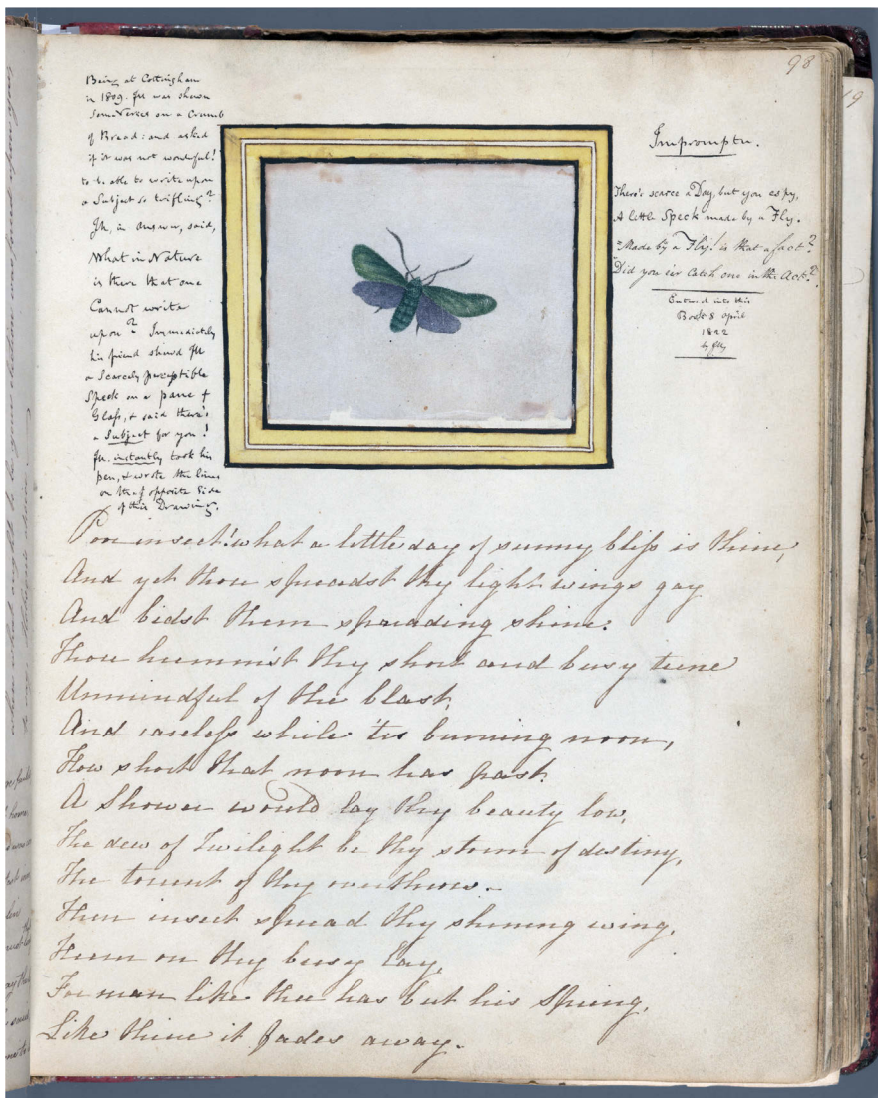 98
Being at Cottingham
in 1809. JM was shewn
Some Verses on a Crumb
of Bread: and asked
if it was not wonderful!
to be able to write upon
a Subject so trifling?
JM, in answer, said,
What in Nature
is there that one
Cannot write
upon? Immediately
his friend shewed JM
a Scarcely perceptible
Speck on a pane of
Glass, & said there's
a Subject for you!
JM. instantly took his
pen, & wrote the lines
on the opposite Side
of this Drawing.
Impromptu.
There's scarce a Day, but you espy,
A little Speck made by a Fly.
"Made by a Fly! is that a fact?
"Did you e'er Catch one in the Act?"
Entered into this
Book 8 April
1822
by JM
Poor insect! what a little day of sunny bliss is thine,
And yet thou spreadst thy light wings gay
And bidst them spreading shine.
Thou humm'st thy short and busy tune
Unmindful of the blast,
And careless while 'tis burning noon,
How short that noon has past.
A Shower would lay thy beauty low,
The dew of Twilight be thy storm of destiny,
The torrent of thy overthrow.
Then insect spread thy shining wing,
Hum on thy busy lay,
For man like thee has but his Spring,
Like thine it fades away.
19